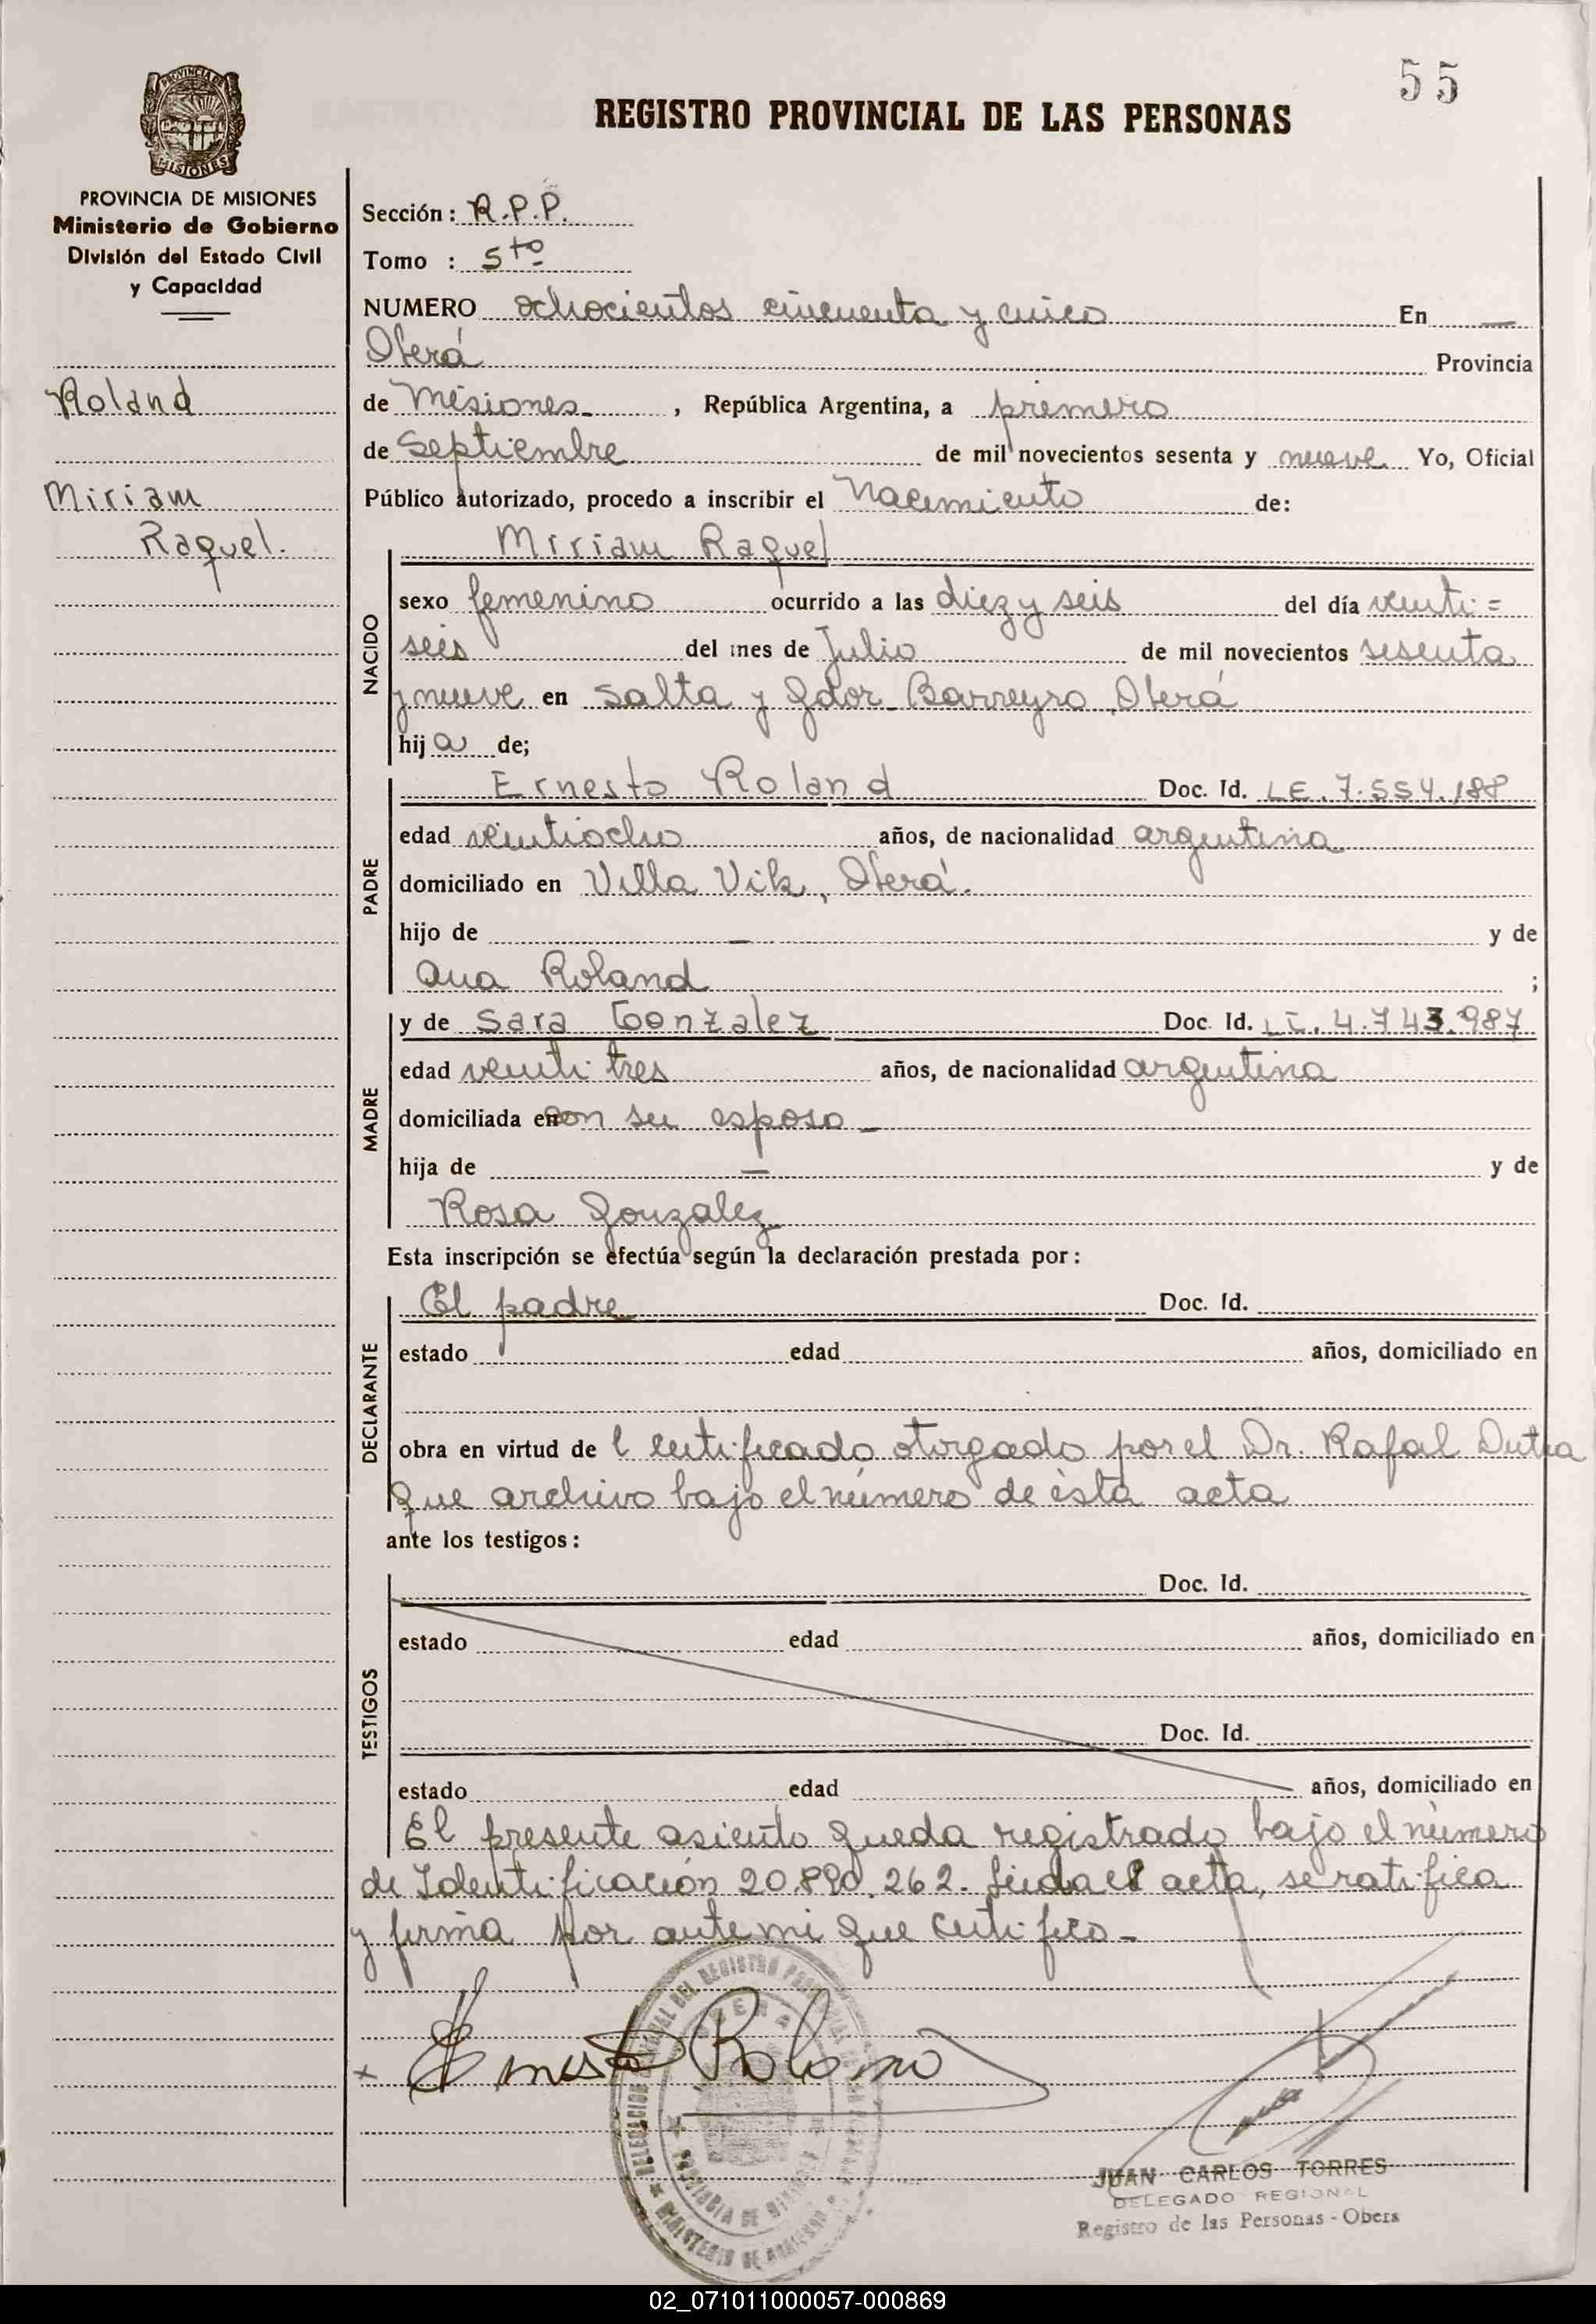 55
REGISTRO PROVINCIAL DE LAS PERSONAS
PROVINCIA DE MISIONES
Ministerio de Gobierno
División del Estado Civil
y Capacidad
Roland
Miriam
Raquel.
Sección: R.P.P.
Tomo : 5to
NUMERO ochocientos cincuenta y cinco En —
Oberá Provincia
de Misiones , República Argentina, a primero
de Septiembre de mil novecientos sesenta y nueve Yo, Oficial
Público autorizado, procedo a inscribir el Nacimiento de:
NACIDO
Miriam Raquel
sexo femenino ocurrido a las diez y seis del día veinti=
seis del mes de Julio de mil novecientos sesenta
y nueve en Salta y Gdor. Barreyro, Oberá
hija de;
PADRE
Ernesto Roland Doc. Id. LE. 7.554.188
edad veintiocho años, de nacionalidad argentina
domiciliado en Villa Vik, Oberá.
hijo de — y de
Ana Roland ;
MADRE
y de Sara Gonzalez Doc. Id. LC. 4.743.987
edad veinti tres años, de nacionalidad argentina
domiciliada en con su esposo —
hija de — y de
Rosa Gonzalez
Esta inscripción se efectúa según la declaración prestada por:
DECLARANTE
El padre Doc. Id.
estado edad años, domiciliado en
obra en virtud de l certificado otorgado por el Dr. Rafal Dutra
que archivo bajo el número de ésta acta
ante los testigos:
TESTIGOS
Doc. Id.
estado edad años, domiciliado en
Doc. Id.
estado edad años, domiciliado en
El presente asiento queda registrado bajo el número
de Identificación 20.890.262. Leida el acta, se ratifica
y firma por ante mi que certifico -
x Ernesto Roland
JUAN CARLOS TORRES
DELEGADO REGIONAL
Registro de las Personas - Obera
02_071011000057-000869